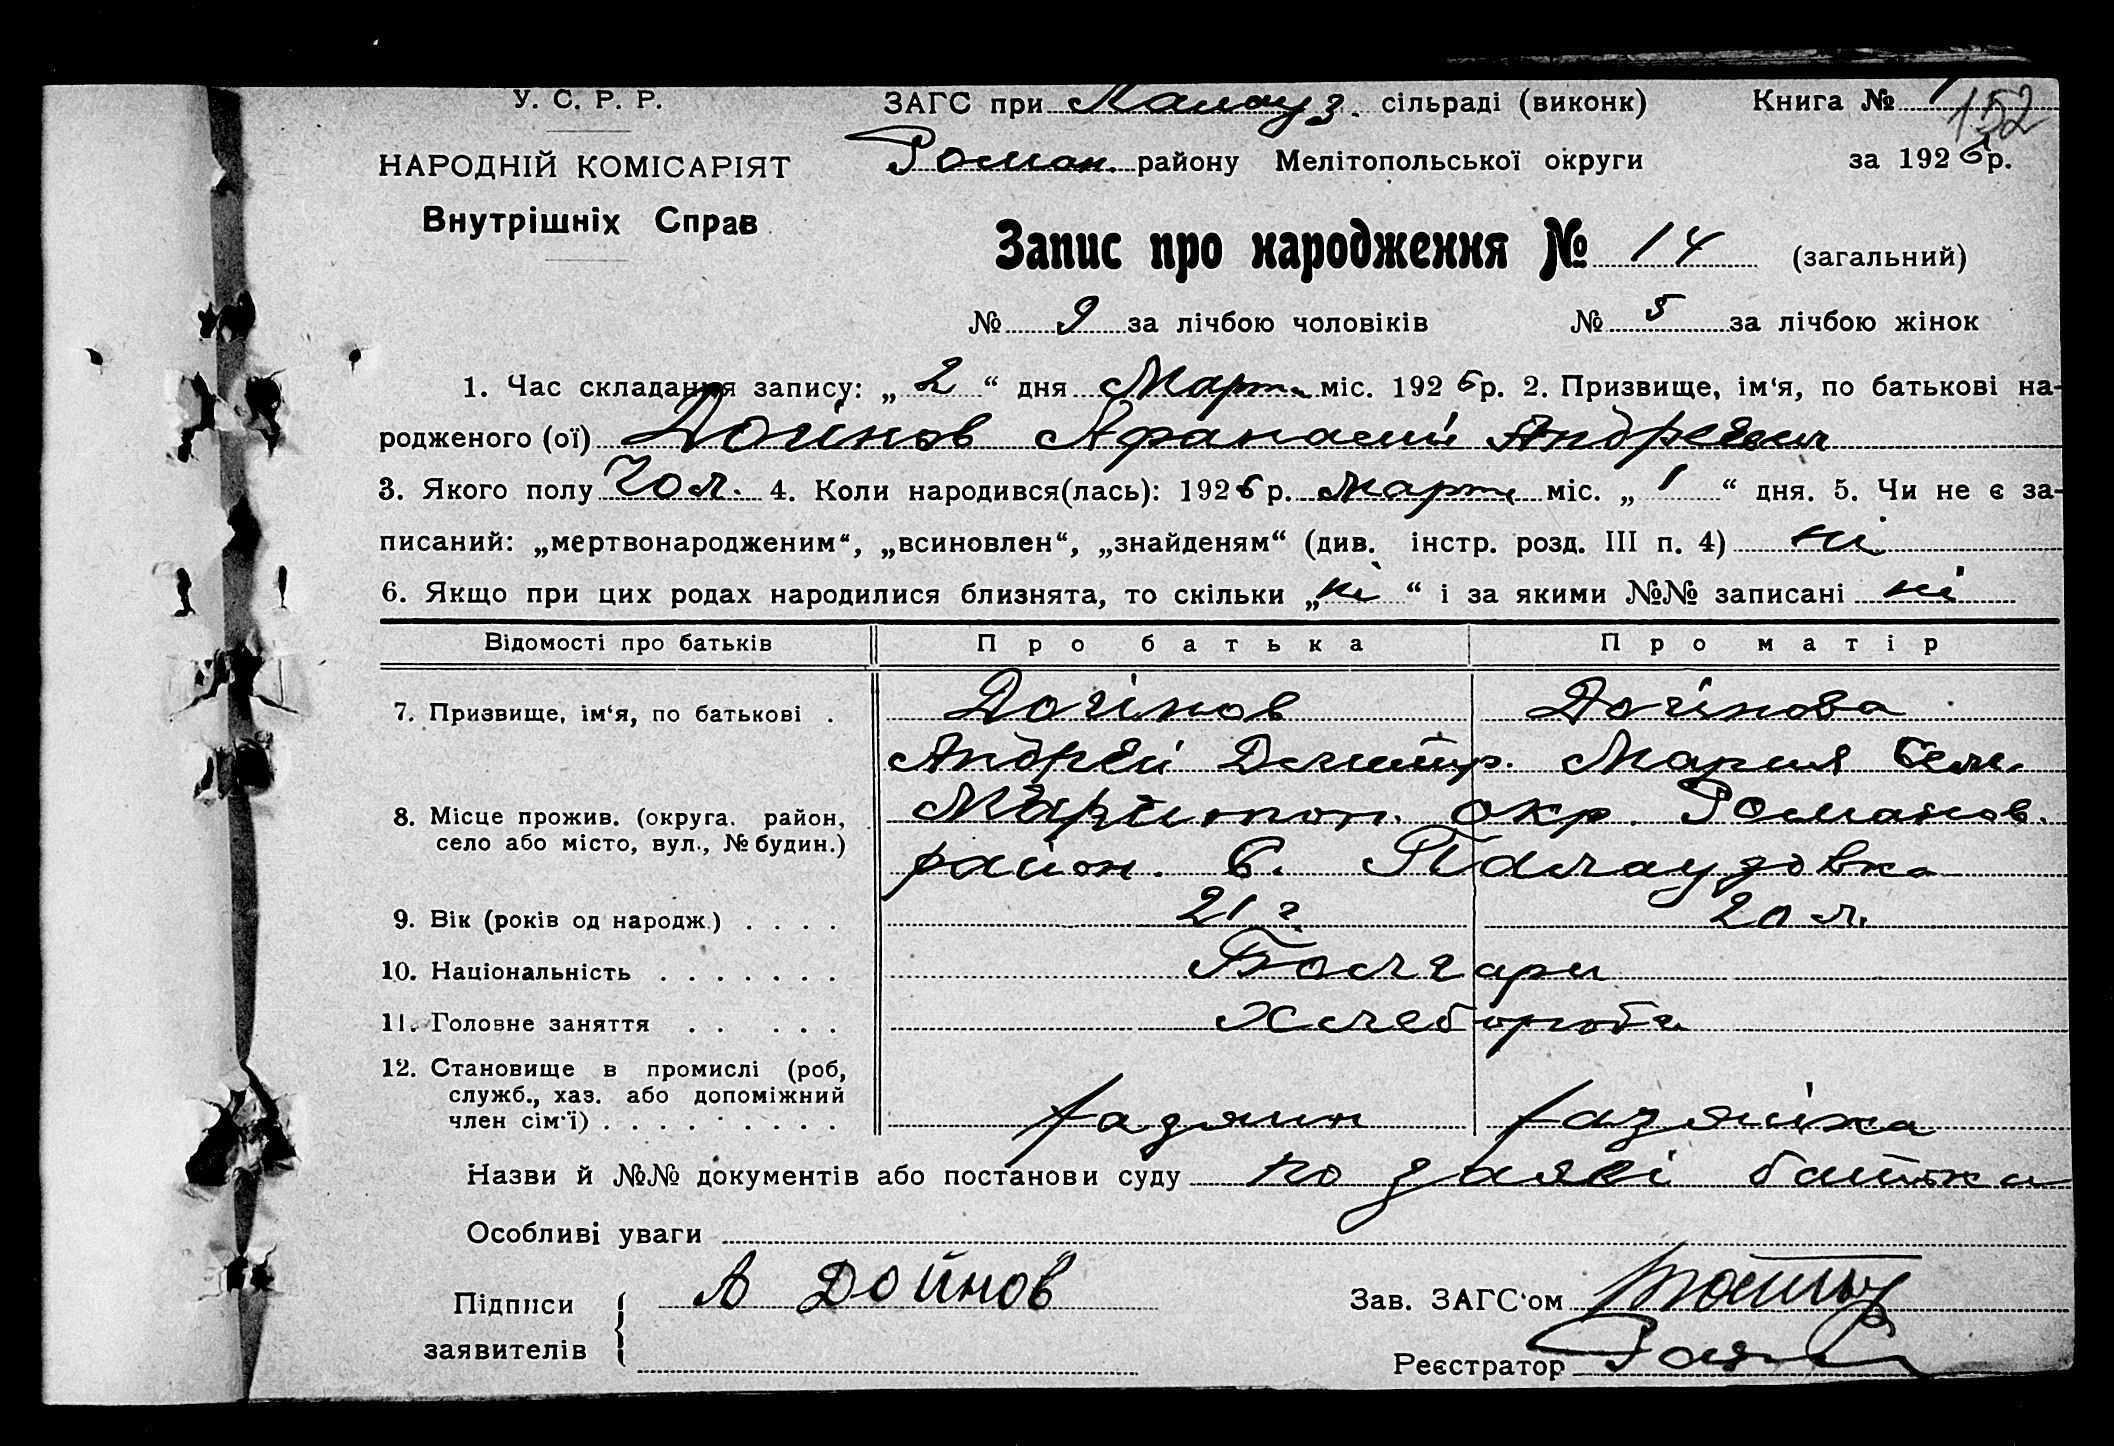 У. С. Р. Р.
НАРОДНІЙ КОМІСАРІЯТ
Внутрішніх Справ
ЗАГС при Палауз. сільраді (виконк) Книга № 1
152
Роман. району Мелітопольської округи за 1926 р.
Запис про народження № 14 (загальний)
№ 9 за лічбою чоловіків № 5 за лічбою жінок
1. Час складання запису: „ 2 “ дня Март. міс. 1926 р. 2. Призвище, ім‘я, по батькові на-
родженого (ої) Дойнов Афанасий Андреевич
3. Якого полу Чол. 4. Коли народився(лась): 1926 р. Март. міс. „ 1 “ дня. 5. Чи не є за-
писаний: „мертвонародженим“, „всиновлен“, „знайденям“ (див. інстр. розд. III п. 4) ні
6. Якщо при цих родах народилися близнята, то скільки „ ні “ і за якими №№ записані ні
Відомості про батьків Про батька Про матір
7. Призвище, ім‘я, по батькові . Доінов Доінова
Андрей Дмитр. Мария Сем.
8. Місце прожив. (округа, район, село або місто, вул., № будин.) окр. Романов.
район. с. Палаузовка
9. Вік (років од народж.) . . . . 21 г. 20 л.
10. Національність . . . . . . . Болгари
11. Головне заняття . . . . . Хлебороби
12. Становище в промислі (роб,
служб., хаз. або допоміжний
член сім‘ї) . . . . . . . . . хазяин хазяіка
Назви й №№ документів або постанови суду по заяві батька
Особливі уваги
Підписи заявителів { А Дойнов
Зав. ЗАГС‘ом
Реєстратор